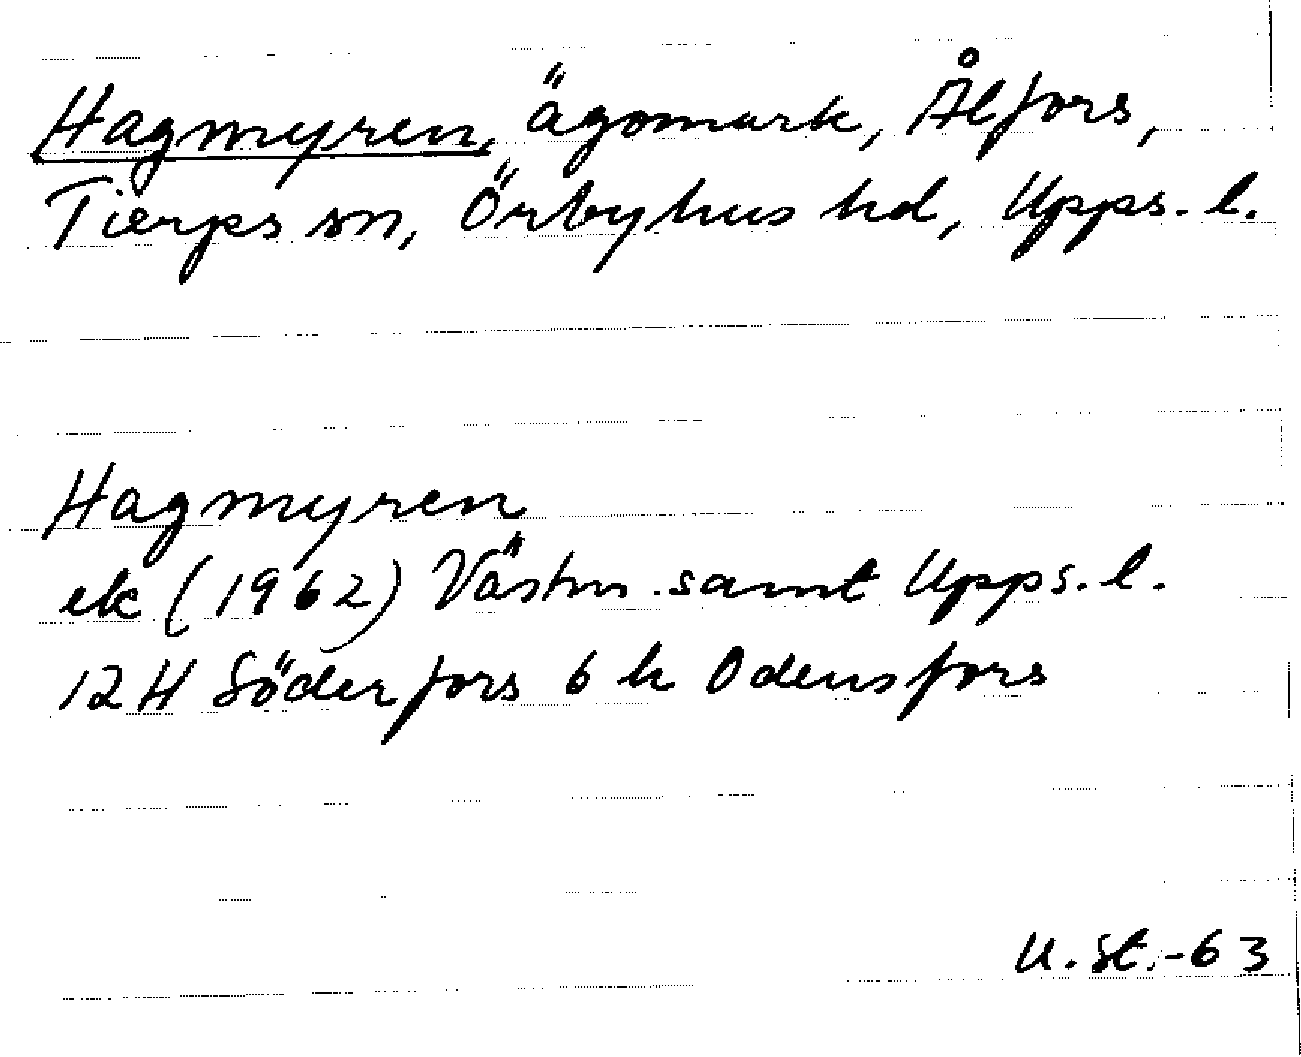 Hagmyren, ägomark, Ålfors,
Tierps sn, Örbyhus hd, Upps. l.
Hagmyren
ek (1962) Västm. samt Upps. l.
12 H Söderfors 6 h Odensfors
U. St. -63